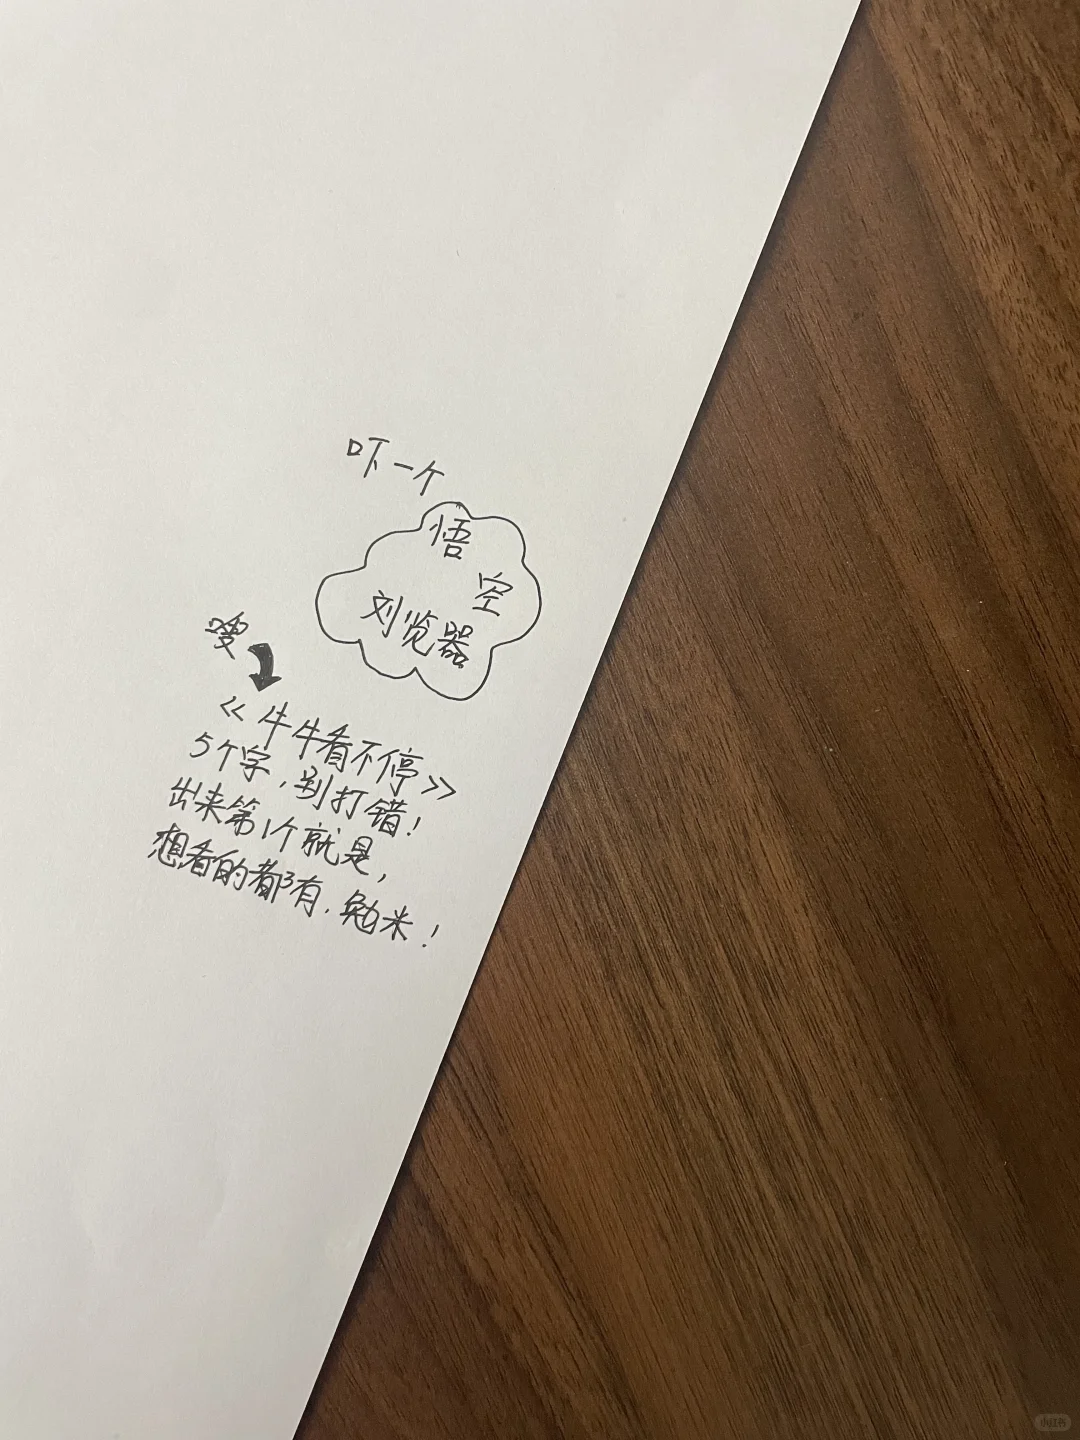 吓一个
悟
空
刘览器
嗖
《牛牛看不停》
5个字，别打错！
出来第1个就是，
想看的都有，勉米！
小红书